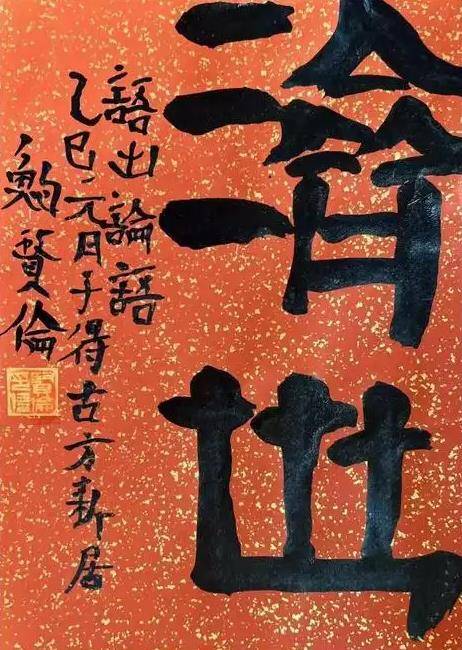 世
語出論語
乙巳元日于得古方新居
鮑賢倫